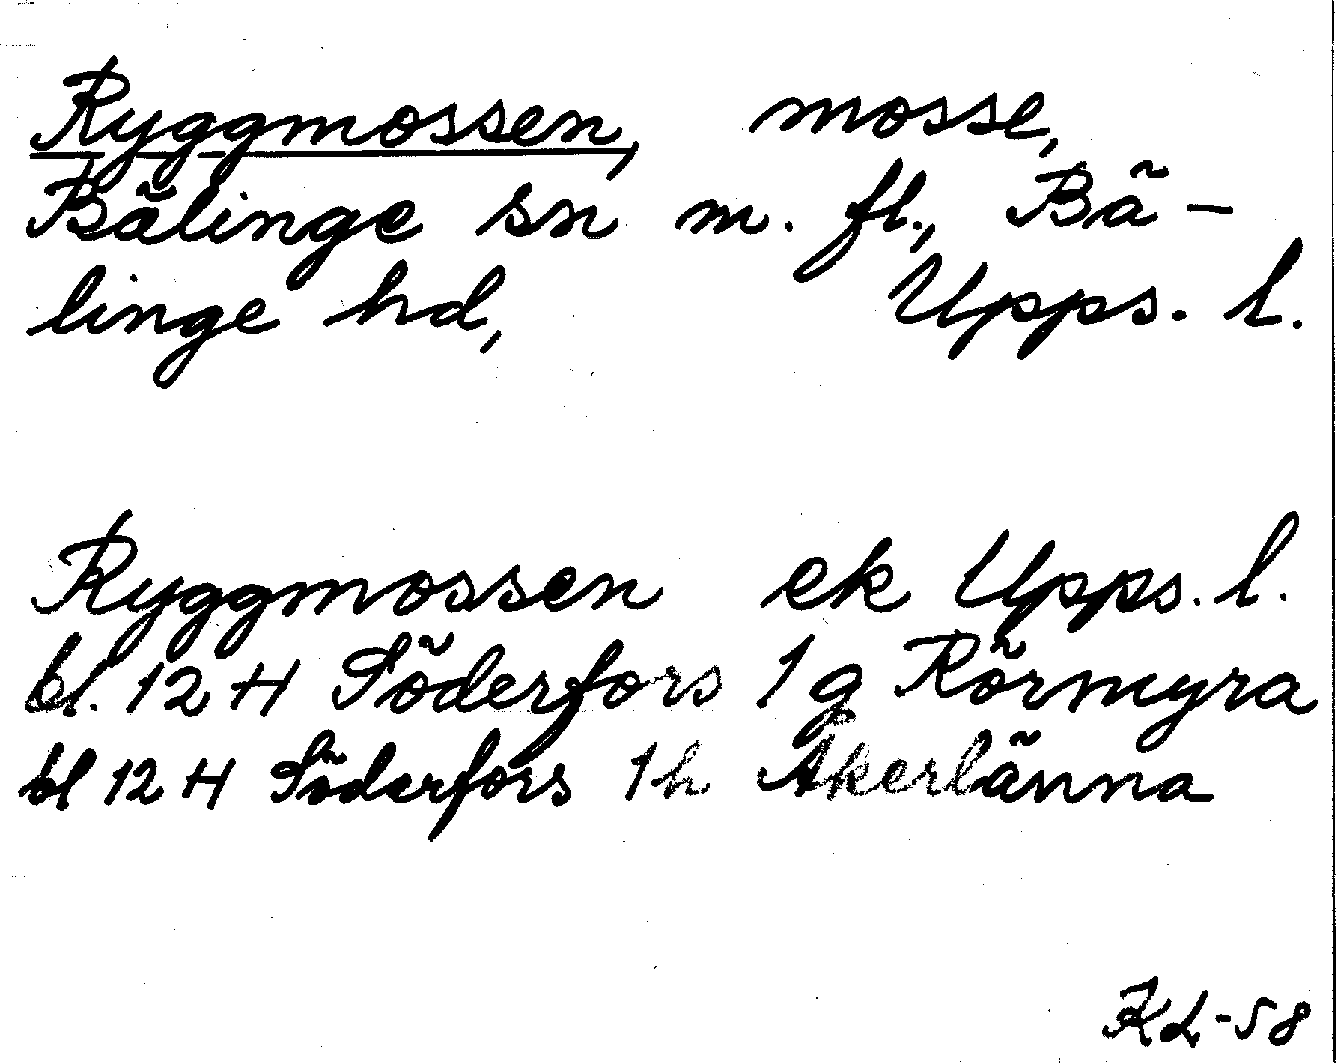 Ryggmossen, mosse,
Bälinge sn m. fl., Bä-
linge hd, Upps. l.
Ryggmossen ek Upps. l.
bl. 12 H Söderfors 1 g Rörmyra
bl 12 H Söderfors 1 h Åkerlänna
KL-58